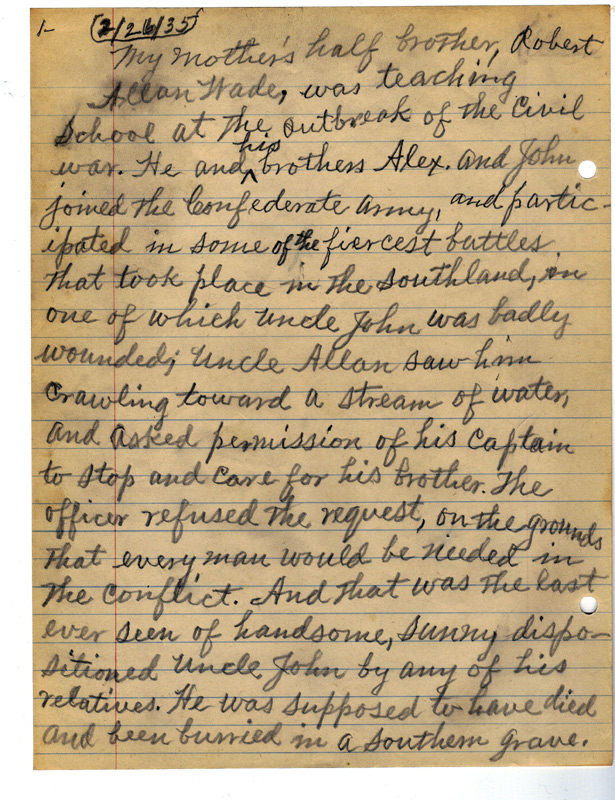 1- (2/26/35)
My mother's half brother, Robert
Allan Wade, was teaching
school at the outbreak of the Civil
war. He and his brothers Alex. and John
joined the Confederate army, and partic-
ipated in some of the fiercest battles
that took place in the southland, in
one of which Uncle John was badly
wounded; Uncle Allan saw him
crawling toward a stream of water,
and asked permission of his Captain
to stop and care for his brother. The
officer refused the request, on the grounds
that every man would be needed in
the conflict. And that was the last
ever seen of handsome, sunny dispo-
sitioned Uncle John by any of his
relatives. He was supposed to have died
and been burried in a southern grave.